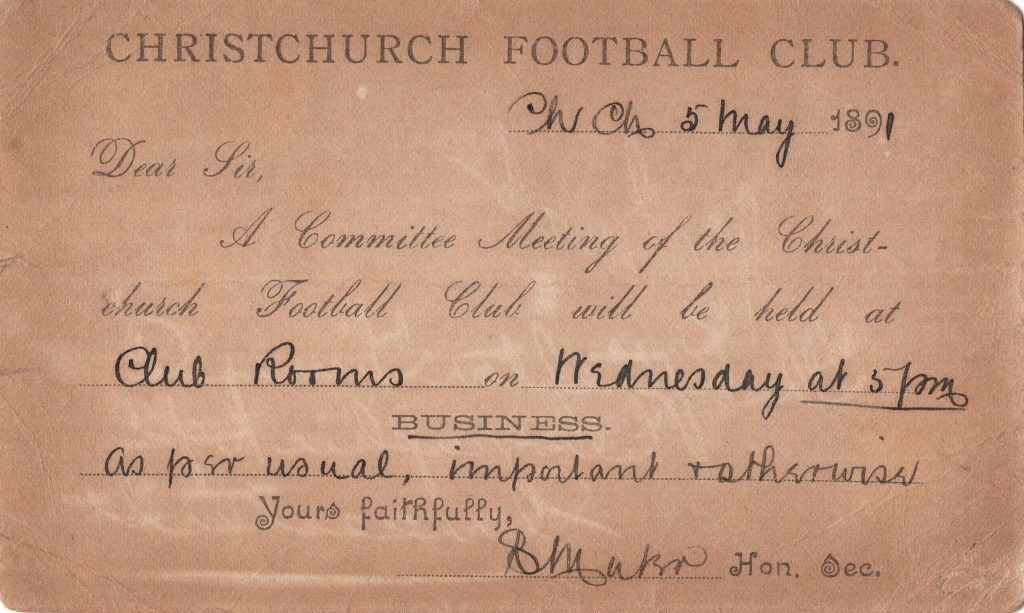 CHRISTCHURCH FOOTBALL CLUB.
Ch Ch 5 May 1891
Dear Sir,
A Committee Meeting of the Christ-
church Football Club will be held at
Club Rooms on Wednesday at 5 pm
BUSINESS.
As per usual, important & otherwise
Yours faithfully,
Hon. Sec.